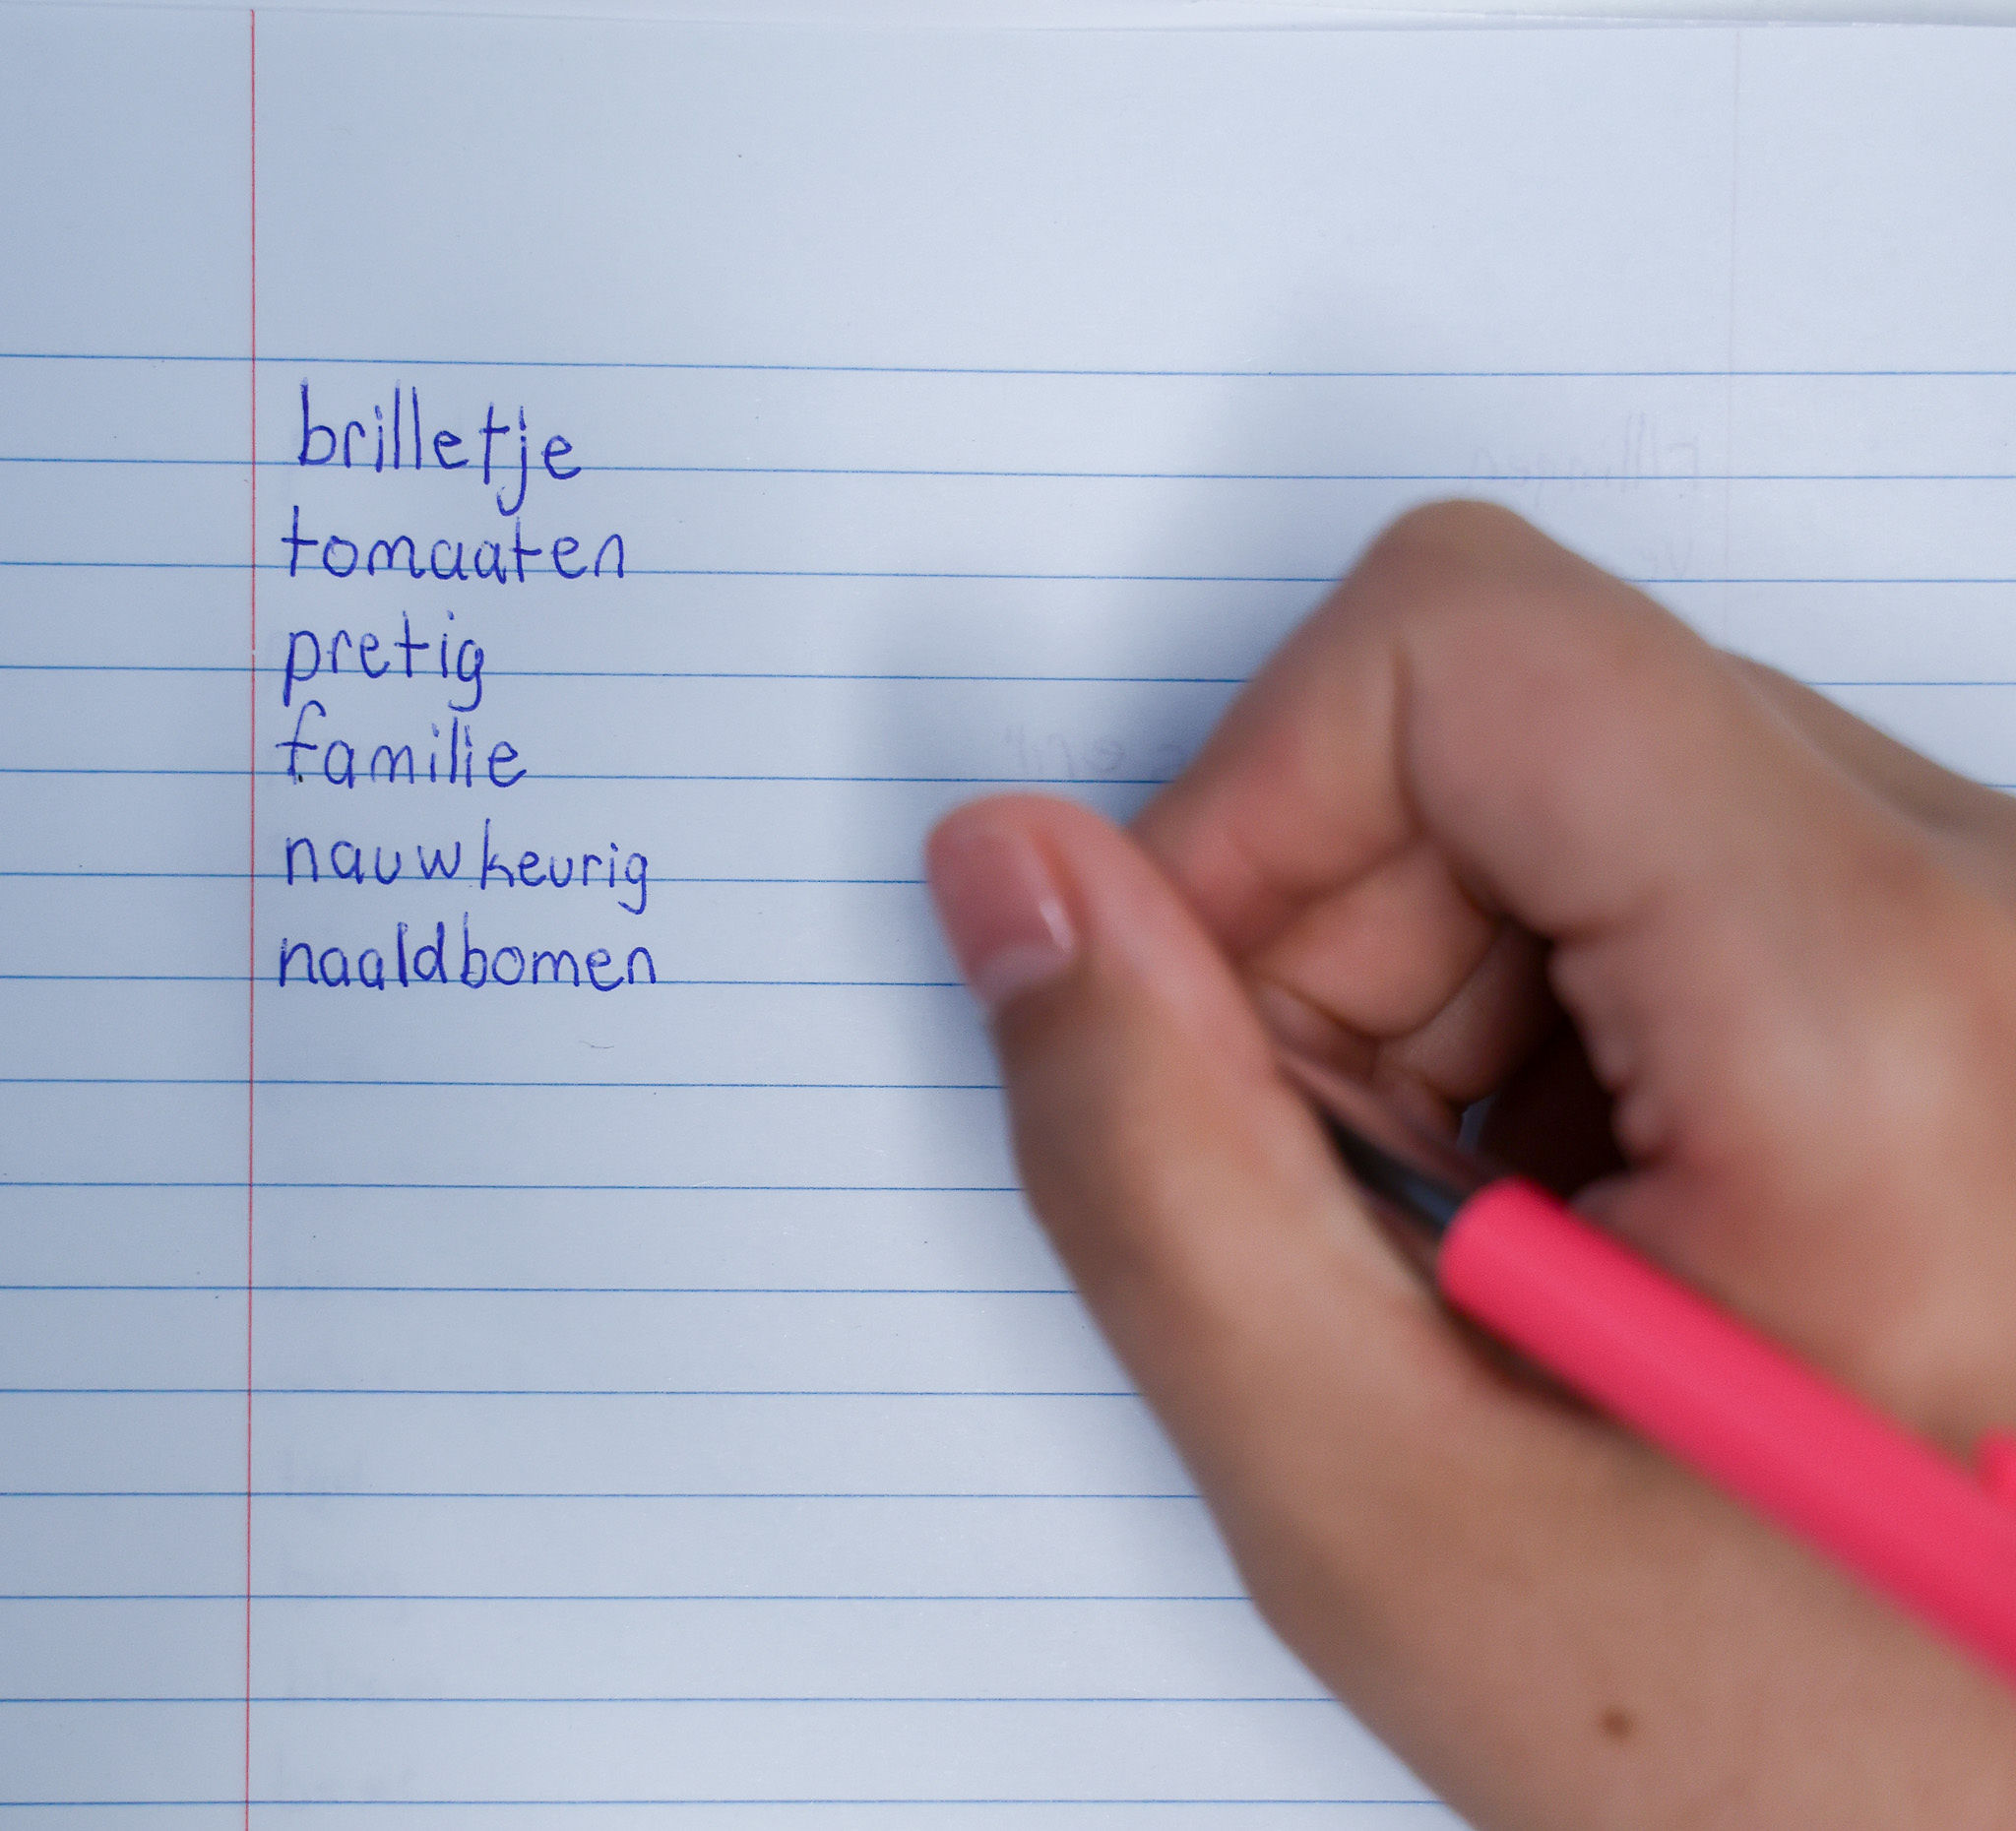 brilletje
tomaaten
pretig
familie
nauwkeurig
naaldbomen